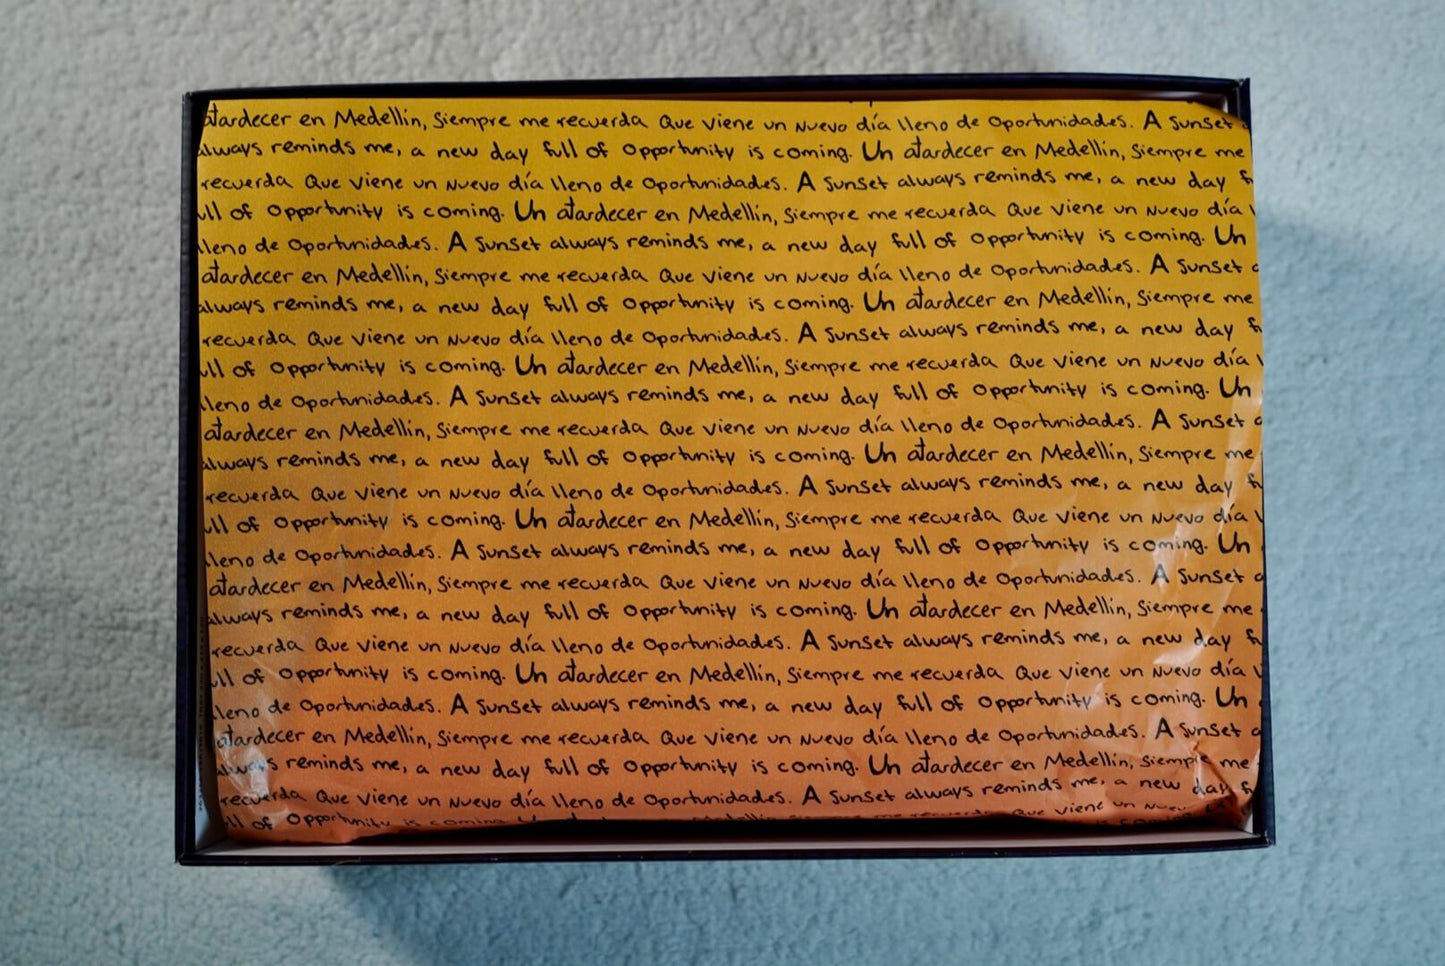 atardecer en Medellín, siempre me recuerda Que viene un nuevo día lleno de Oportunidades. A sunset
always reminds me, a new day full of Opportunity is coming. Un atardecer en Medellín, siempre me
recuerda Que viene un nuevo día lleno de Oportunidades. A sunset always reminds me, a new day f
ull of Opportunity is coming. Un atardecer en Medellín, siempre me recuerda Que viene un nuevo día
lleno de Oportunidades. A sunset always reminds me, a new day full of Opportunity is coming. Un
atardecer en Medellín, siempre me recuerda Que viene un nuevo día lleno de Oportunidades. A sunset
always reminds me, a new day full of Opportunity is coming. Un atardecer en Medellín, siempre me
recuerda Que viene un nuevo día lleno de Oportunidades. A sunset always reminds me, a new day f
ull of Opportunity is coming. Un atardecer en Medellín, siempre me recuerda Que viene un nuevo día
lleno de Oportunidades. A sunset always reminds me, a new day full of Opportunity is coming. Un
atardecer en Medellín, siempre me recuerda Que viene un nuevo día lleno de Oportunidades. A sunset
always reminds me, a new day full of Opportunity is coming. Un atardecer en Medellín, siempre me
recuerda Que viene un nuevo día lleno de Oportunidades. A sunset always reminds me, a new day f
ull of Opportunity is coming. Un atardecer en Medellín, siempre me recuerda Que viene un nuevo día
lleno de Oportunidades. A sunset always reminds me, a new day full of Opportunity is coming. Un
atardecer en Medellín, siempre me recuerda Que viene un nuevo día lleno de Oportunidades. A sunset
always reminds me, a new day full of Opportunity is coming. Un atardecer en Medellín, siempre me
recuerda Que viene un nuevo día lleno de Oportunidades. A sunset always reminds me, a new day f
ull of Opportunity is coming. Un atardecer en Medellín, siempre me recuerda Que viene un nuevo día
lleno de Oportunidades. A sunset always reminds me, a new day full of Opportunity is coming. Un
atardecer en Medellín, siempre me recuerda Que viene un nuevo día lleno de Oportunidades. A sunset
always reminds me, a new day full of Opportunity is coming. Un atardecer en Medellín, siempre me
recuerda Que viene un nuevo día lleno de Oportunidades. A sunset always reminds me, a new day f
ull of Opportunity is coming. Medellín, siempre me recuerda Que viene un nuevo